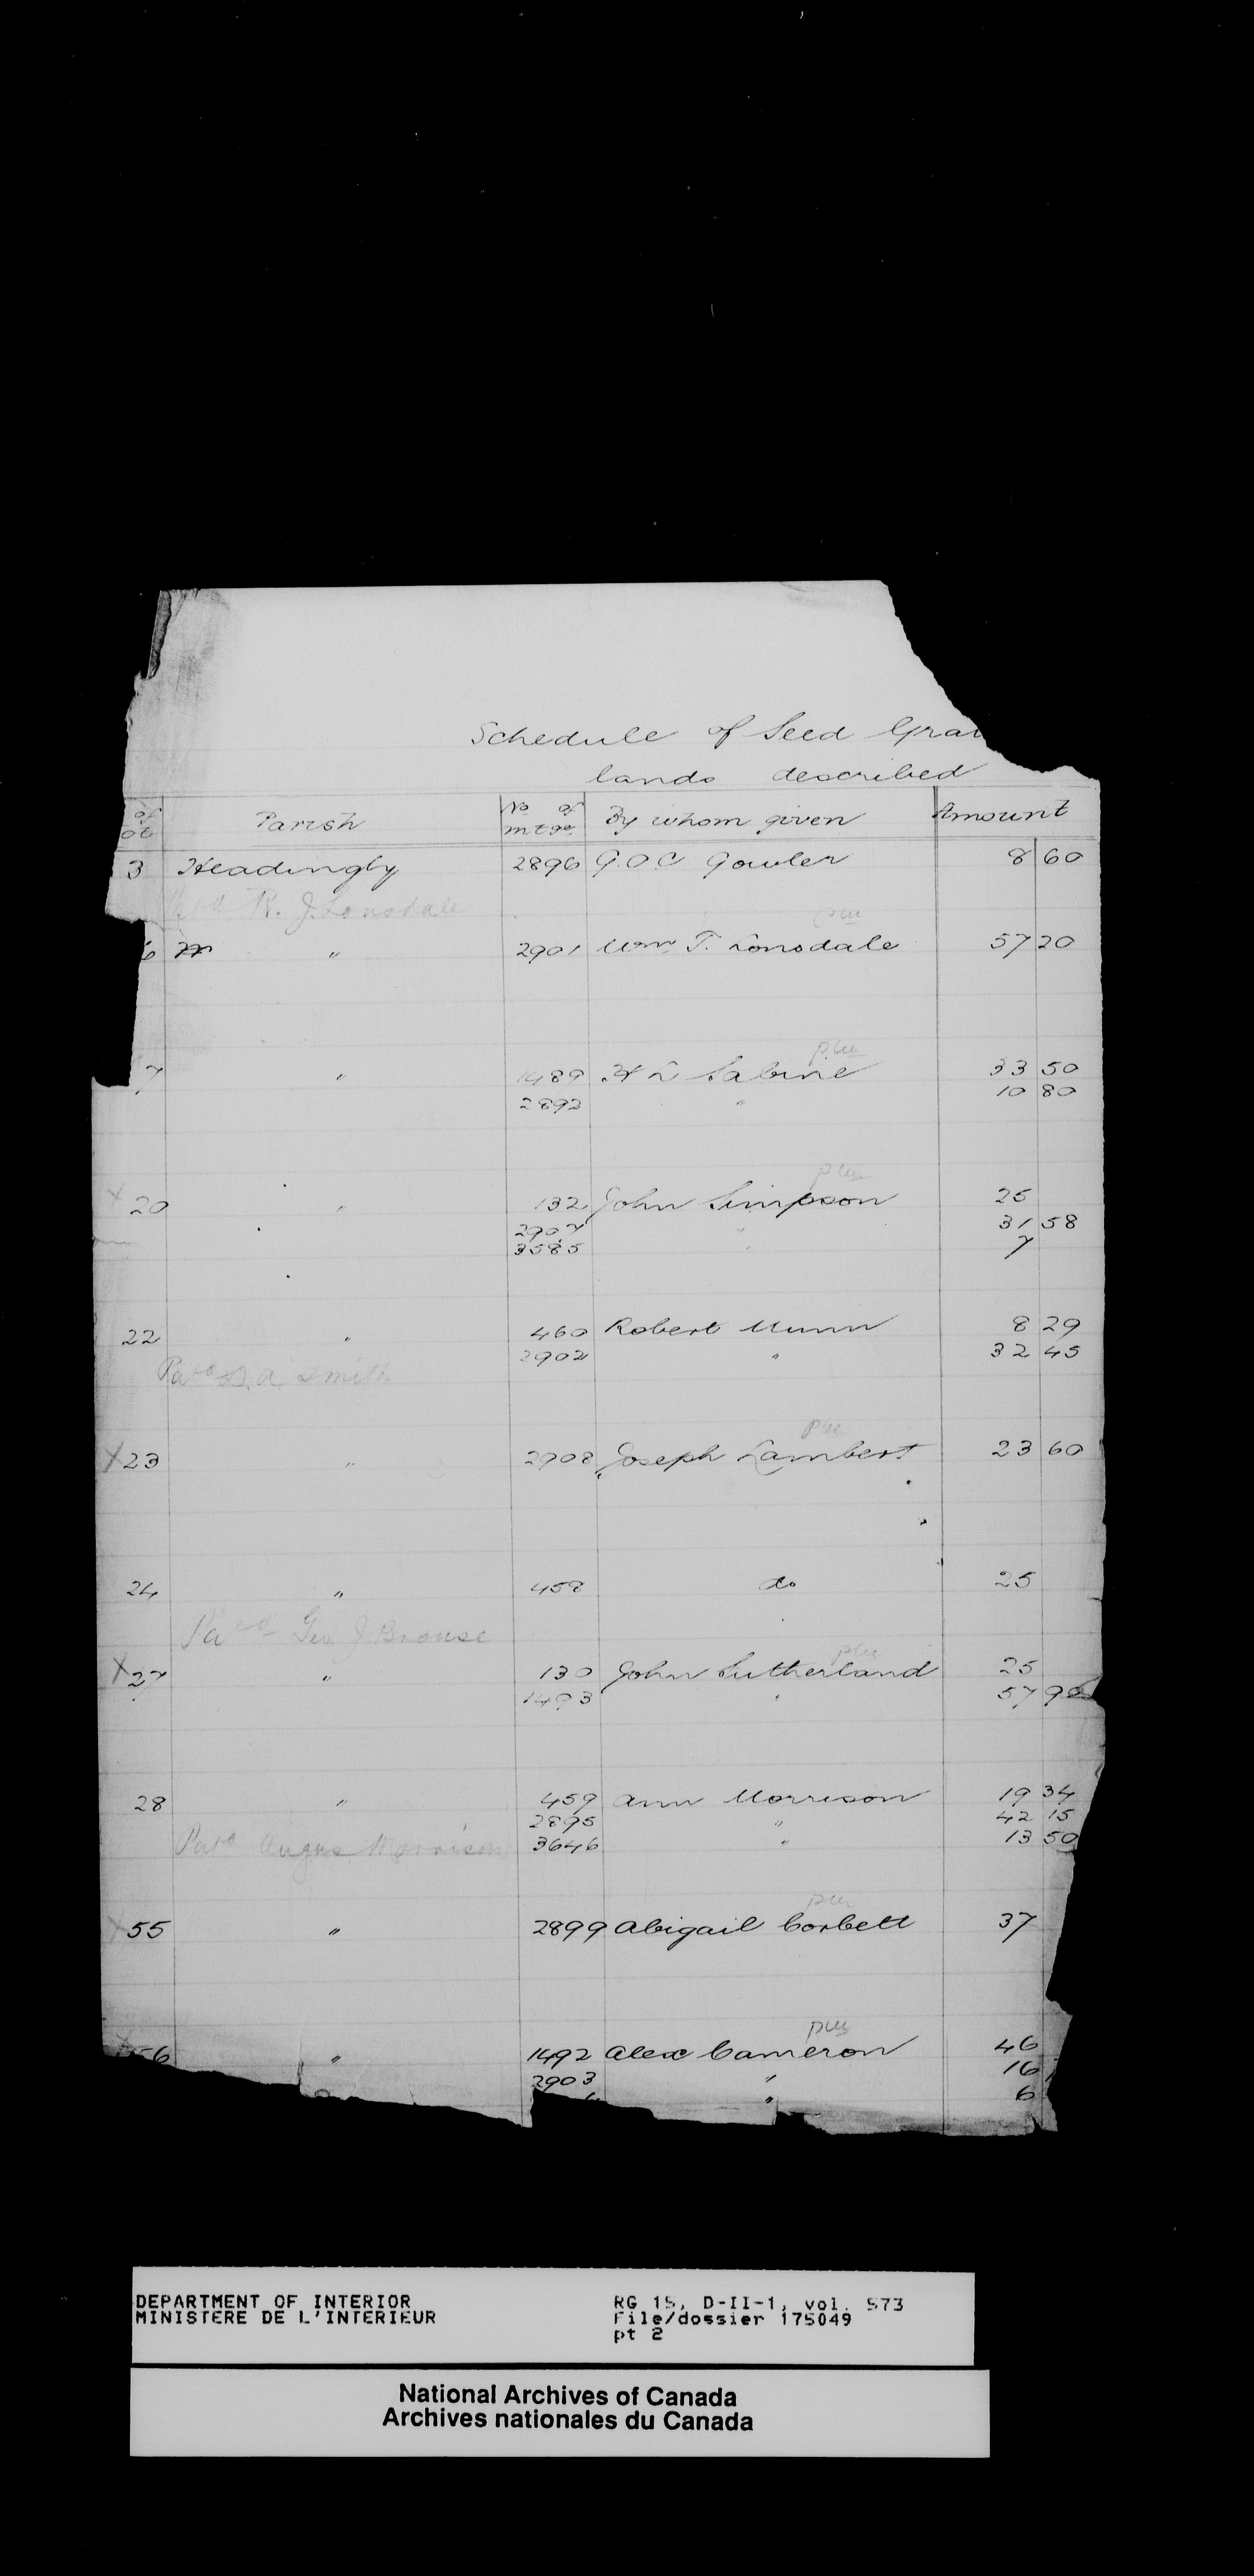 Schedule of Seed Grai
lands described
of ot Parish No of mtge By whom given Amount
3 Headingly 2896 G.O.C. Gowler 8 60
R. J. Lonsdale
6 " 2901 Wm T. Lonsdale 57 20
7 " 1489 H L Sabine 33 50
2892 " 10 80
X 20 " 132 John Simpson 25
2907 " 31 58
3585 " 7
22 " 460 Robert Munn 8 29
2902 " 32 45
Patd D. A. Smith
X 23 " 2908 Joseph Lambert 23 60
24 " 458 do 25
Patd Geo J Brouse
X 27 " 130 John Sutherland 25
1493 " 57 90
28 " 459 Ann Morrison 19 34
2895 " 42 15
Patd Angus Morrison 3646 " 13 50
X 55 " 2899 Abigail Corbett 37
X 56 " 1492 Alex Cameron 46
2903 " 16
" 6
DEPARTMENT OF INTERIOR RG 15, D-II-1, vol. 573
MINISTERE DE L'INTERIEUR File/dossier 175049
pt 2
National Archives of Canada
Archives nationales du Canada